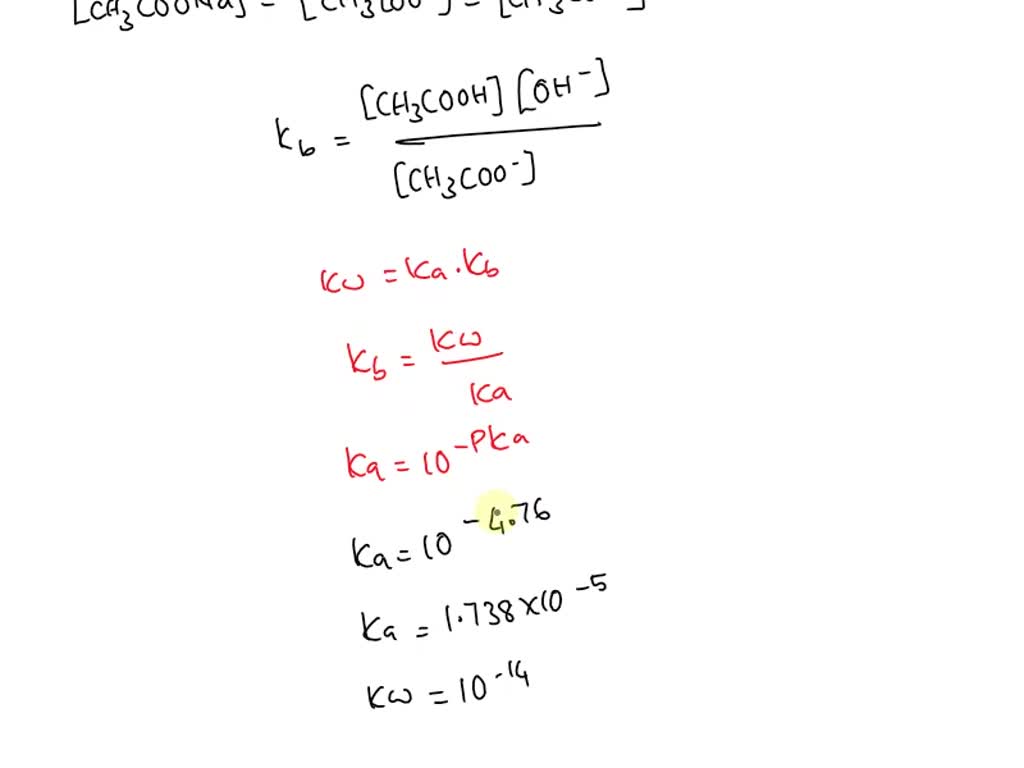 [CH₃COONa] = [CH₃COO⁻] = [CH₃
Kb = [CH₃COOH] [OH⁻] / [CH₃COO⁻]
Kω = Ka . Kb
Kb = Kω / Ka
Ka = 10^-PKa
Ka = 10^-4.76
Ka = 1.738 × 10^-5
Kω = 10^-14